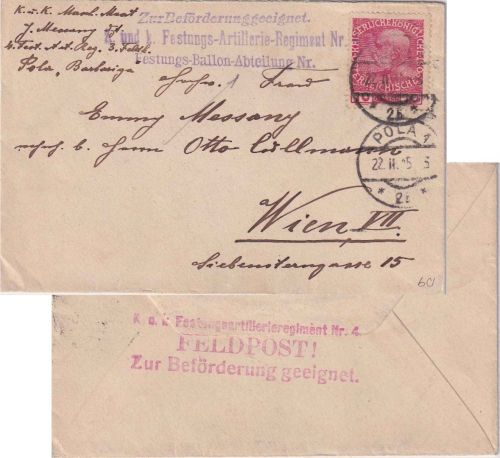 K. u. K. Masch. Maat
J. Messany
4. Fest. Art. Reg. 3. Feldk.
Pola, Barbariga
Zur Beförderung geeignet.
K. und k. Festungs-Artillerie-Regiment Nr.
Festungs-Ballon-Abteilung Nr.
1
KAISERLICHE KÖNIGLICHE
ÖSTERREICHISCHE
2b
Frau
Emmy Messany
b. Herrn Otto Cullmann
POLA 1
22. II. 15
Wien VII.
Siebensterngasse 15
60
K. u. k. Festungsartillerieregiment Nr. 4.
FELDPOST!
Zur Beförderung geeignet.